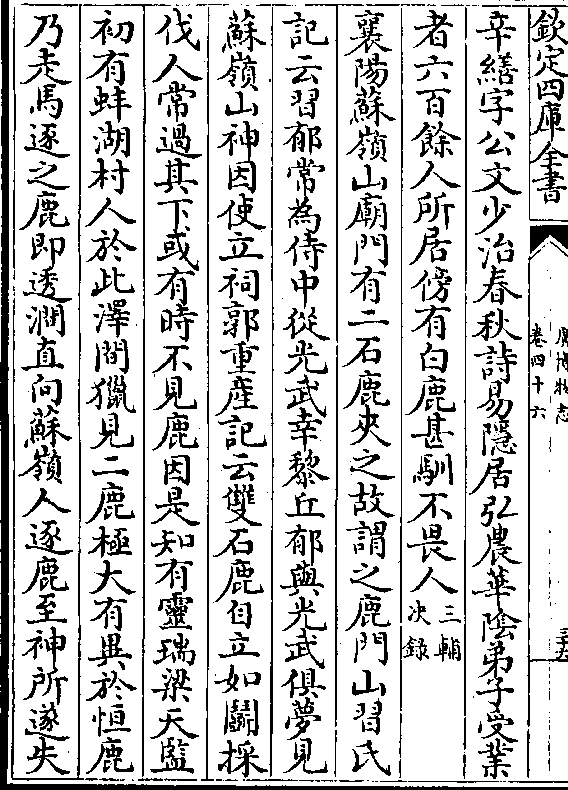 欽定四庫全書
廣博物志
卷四十六
辛繕字公文少治春秋詩易隱居弘農華陰弟子受業
者六百餘人所居傍有白鹿甚馴不畏人三輔決錄
襄陽蘇嶺山廟門有二石鹿夾之故謂之鹿門山習氏
記云習郁常為侍中從光武幸黎丘郁與光武俱夢見
蘇嶺山神因使立祠郭重產記云雙石鹿自立如鬭採
伐人常過其下或有時不見鹿因是知有靈瑞梁天監
初有蚌湖村人於此澤間獵見二鹿極大有異於恒鹿
乃走馬逐之鹿即透澗直向蘇嶺人逐鹿至神所遂失